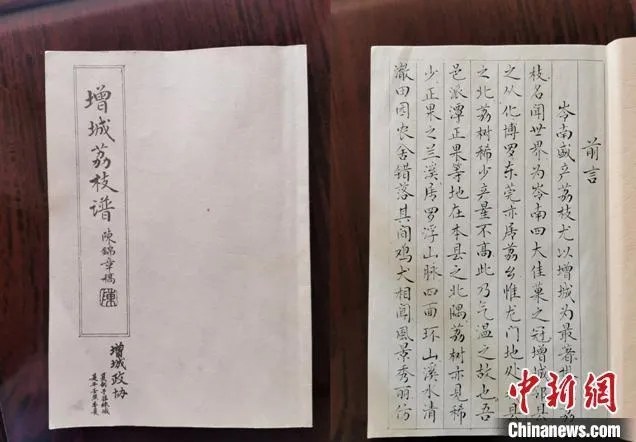 增城荔枝谱
陳錦章稿
陳
增城政协
前言
岑南盛产荔枝尤以增城为最著
枝名闻世界为岑南四大佳菓之冠增城邻县
之从化博罗东莞亦居荔乡惟龙门地处
之北荔树稀少产量不高此乃气温之故也吾
邑派潭正果等地在本县之北隅荔树亦见稀
少正果之兰溪居罗浮山脉四面环山溪水清
澈田园农舍错落其间鸡犬相闻風景秀丽仿
中新网
Chinanews.com